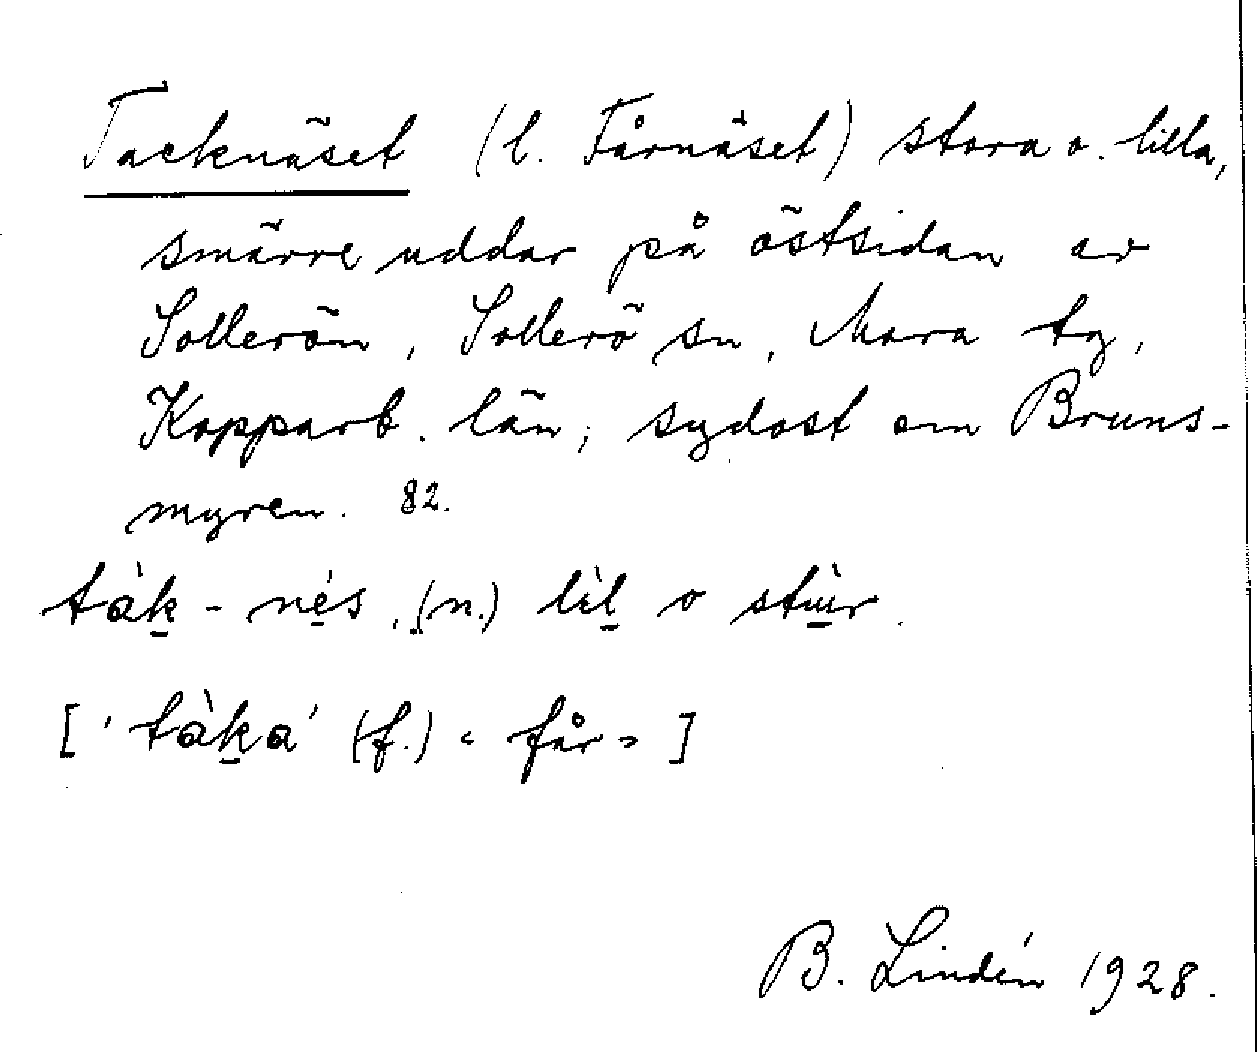 Tacknäset (l. Fårnäset) stora o. lilla,
smärre uddar på östsidan av
Sollerön, Sollerö sn, Mora tg,
Kopparb. län; sydost om Bruns-
myren. 82.
tàk - nés, (n.) lìl o stùr.
['tàka' (f.) "får"]
B. Lindén 1928.